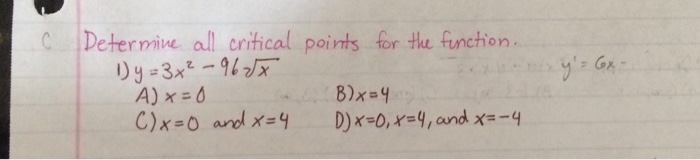 C Determine all critical points for the function.
1) y = 3x² - 96√x y' = 6x -
A) x = 0 B) x = 4
C) x = 0 and x = 4 D) x = 0, x = 4, and x = -4